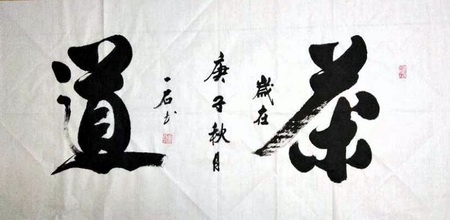 茶
歲在
庚子秋月
道
一石书